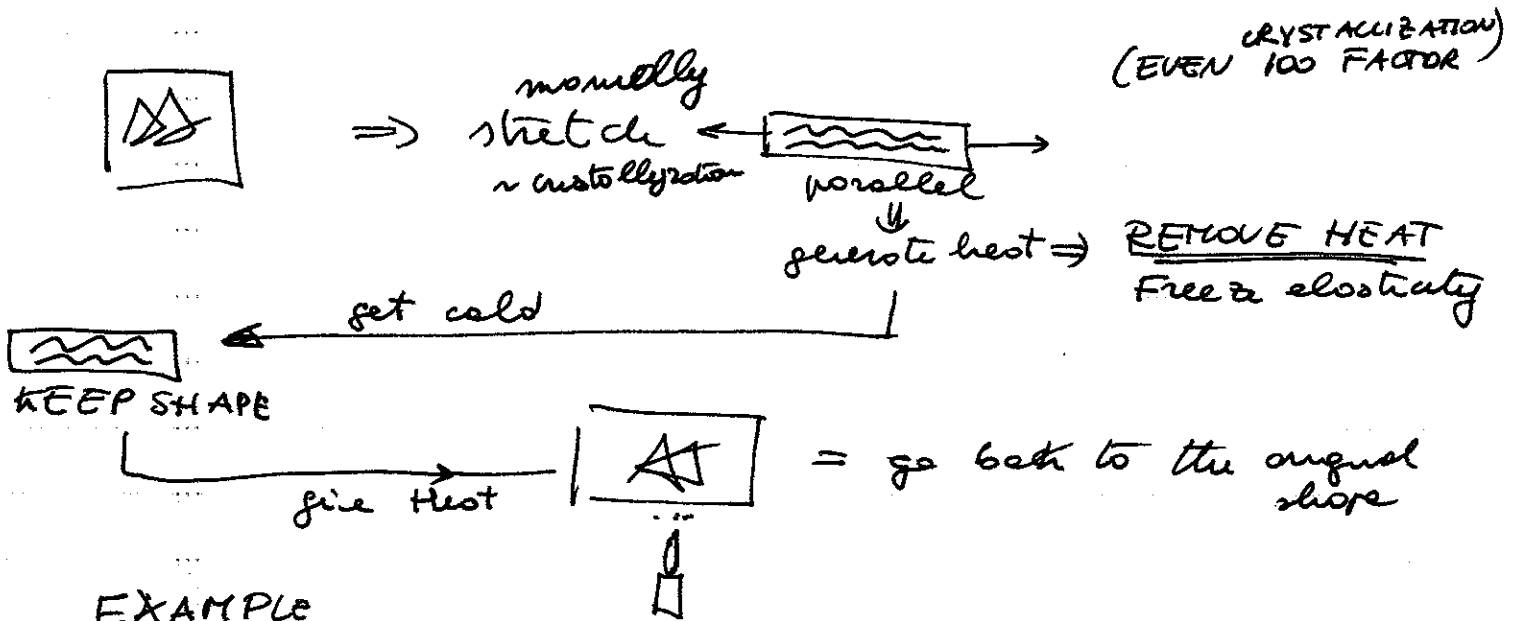 CRYSTALLIZATION)
(EVEN 100 FACTOR
manually
=> stretch
~ crystallyzation
parallel
generate heat => REMOVE HEAT
Freeze elasticity
get cold
KEEP SHAPE
give Heat
= go back to the original
shape
EXAMPLE